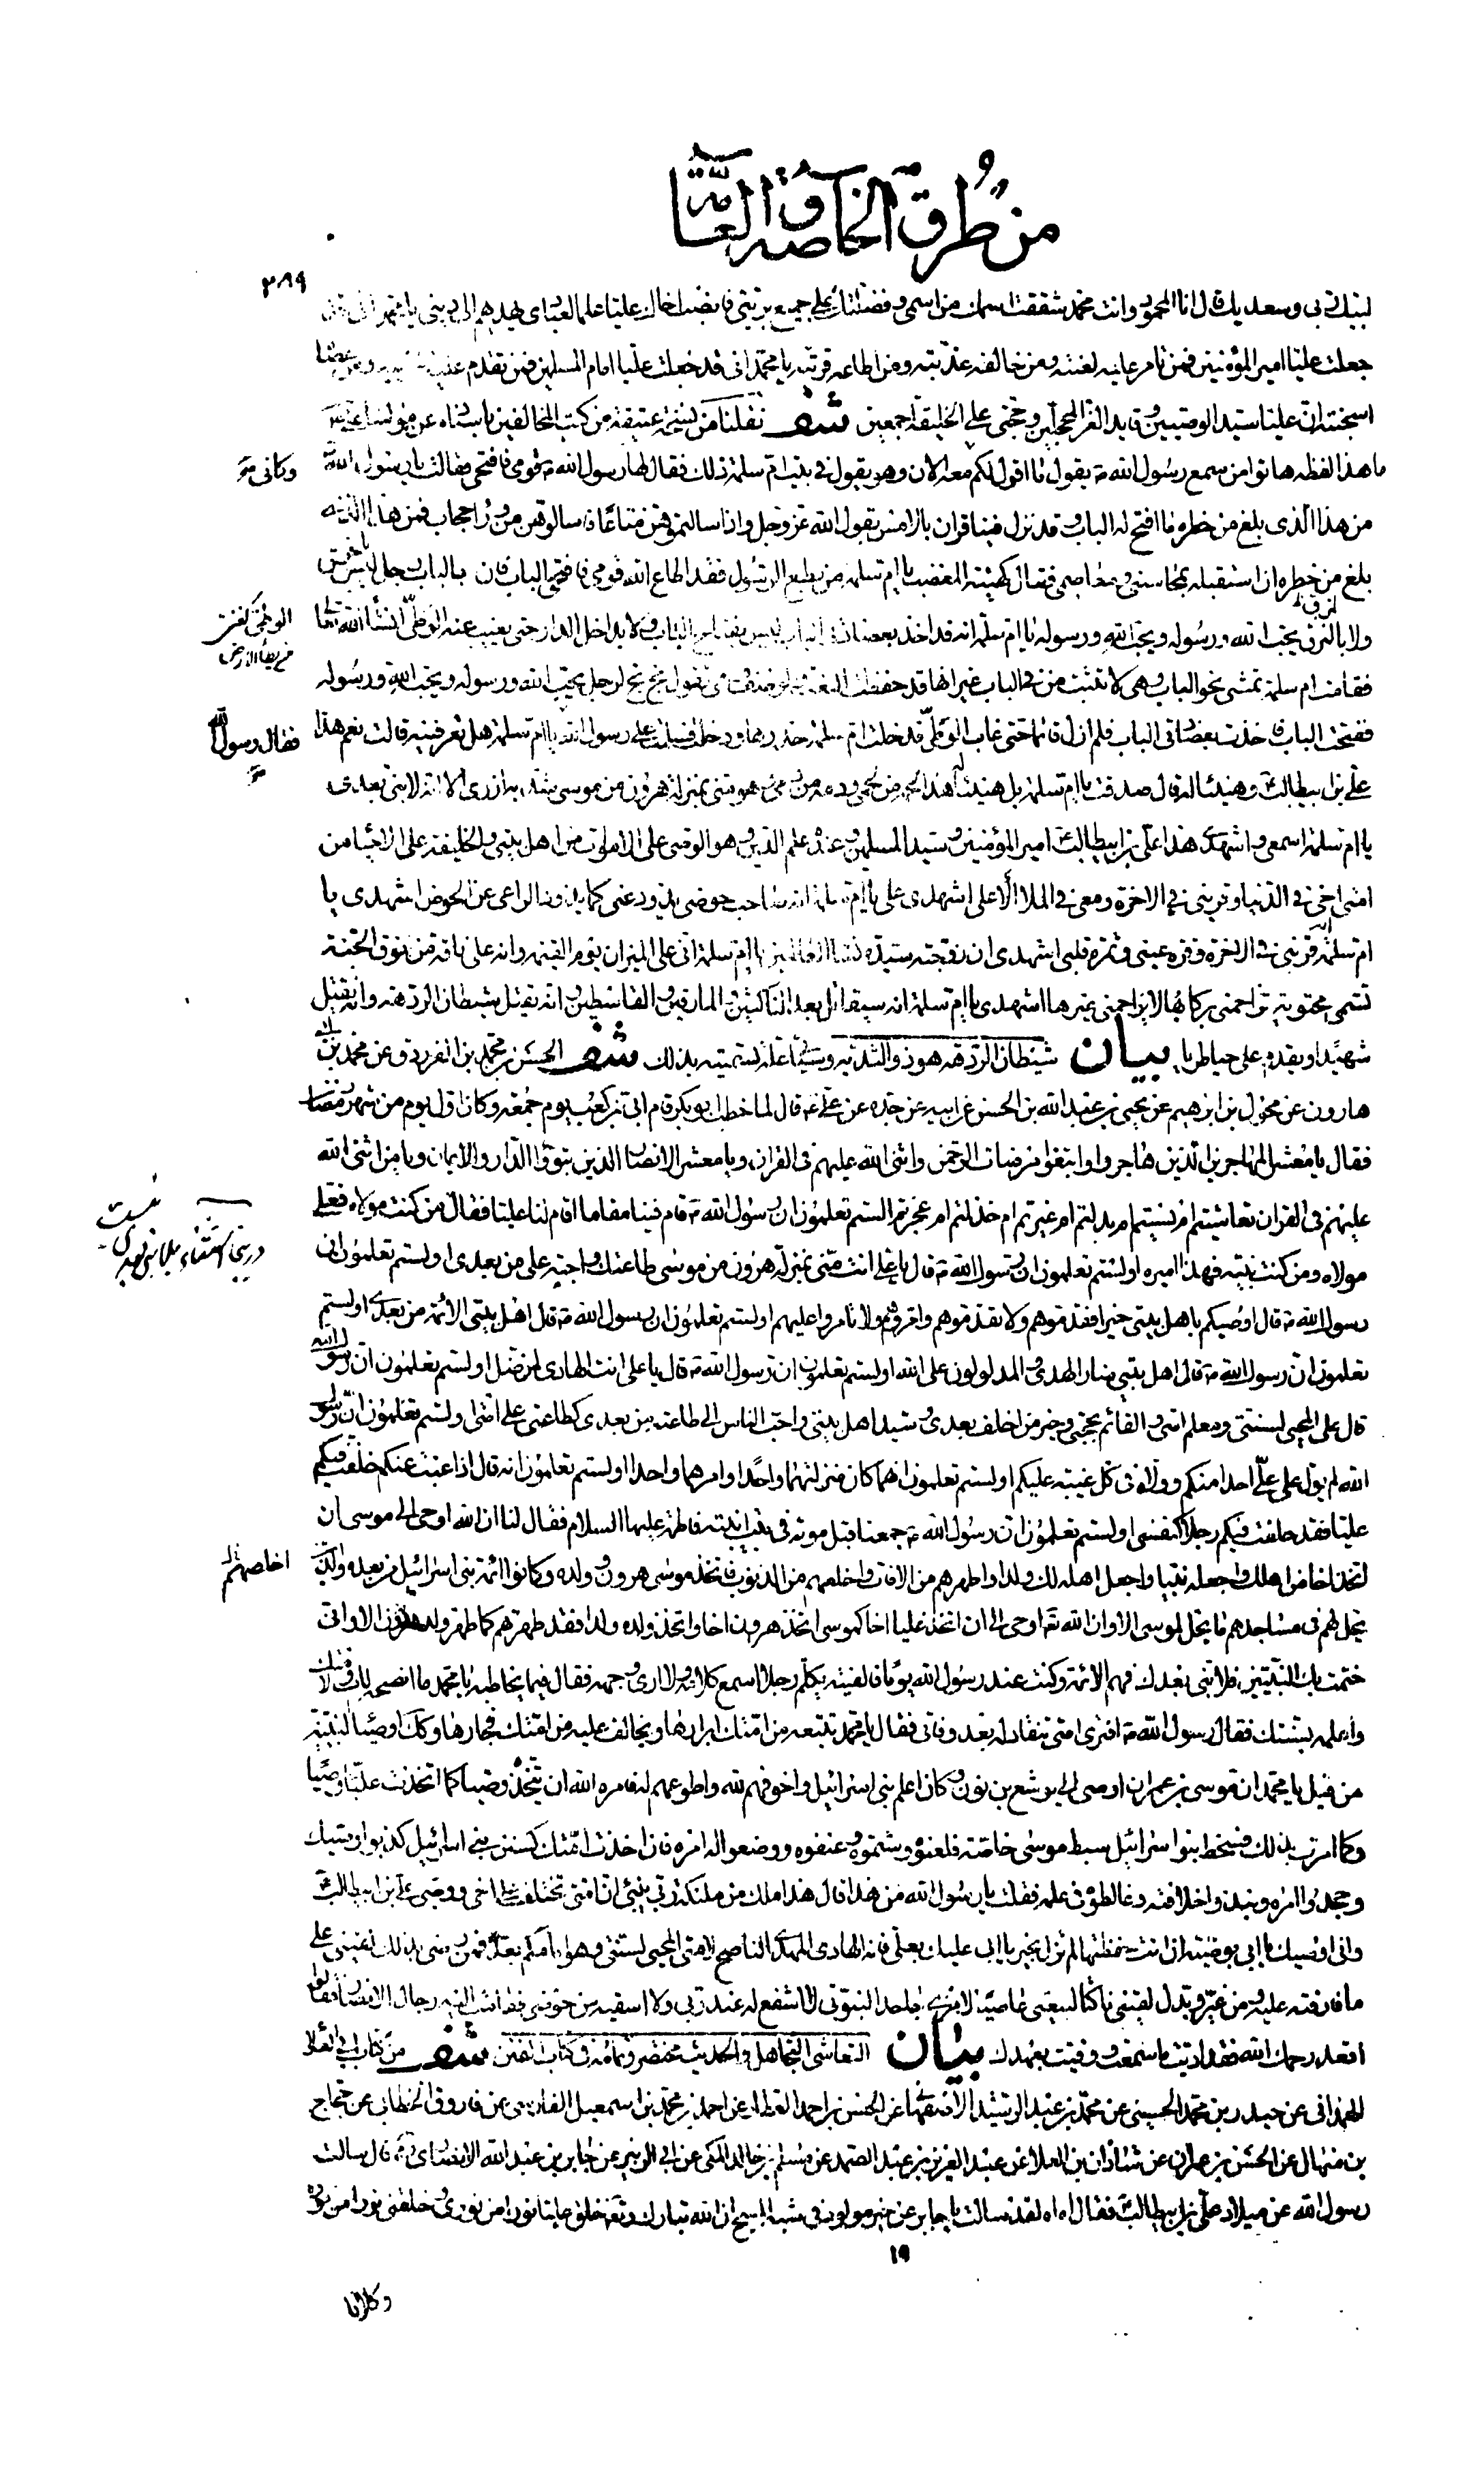 من طرق الخاصة و العامة
٣٨٩
لبيك ربي وسعديك قال انا المحمود وانت محمد شققت اسمك من اسمي وفضلتك على جميع بريتي فانصب اخاك عليا علما لعبادي يهديهم الى ديني يا محمد اني قد
جعلت عليا امير المؤمنين فمن تامر عليه لعنته ومن خالفه عذبته ومن اطاعه قربته يا محمد اني قد جعلت عليا امام المسلمين فمن تقدم عليه
ان عليا سيد الوصيين وقايد الغر المحجلين وحجتي على الخليقة اجمعين شف نقلنا من نسخة عتيقة من كتب المخالفين باسناده عن
ما هذا لفظه هاتوا من سمع رسول الله ص يقول ما اقول لكم معه الان وهو يقول في بيت ام سلمة ذلك فقال لها رسول الله ص قومي فافتحي فقالت يا رسول الله
من هذا الذي بلغ من خطره ما افتح له الباب وقد نزل فينا قران بالامس يقول الله عز وجل واذا سالتموهن متاعا فاسالوهن من وراء حجاب فمن هذا الذي
بلغ من خطره ان استقبله بمحاسني ومعاصمي فقال كهيئة المغضب يا ام سلمة من يطع الرسول فقد اطاع الله قومي فافتحي الباب فان بالباب رجل ليس
ولا بالنزق يحب الله ورسوله ويحبه الله ورسوله يا ام سلمة انه قد اخذ بعضادتي الباب ليس بفتاح الباب ولا بداخل الدار حتى يغيب عنه الوطي انشاء الله تعالى
فقامت ام سلمة تمشي نحو الباب وهي لا تثبت من في الباب غير انها قد حفظت النعت وهي تقول بخ بخ لرجل يحب الله ورسوله ويحبه الله ورسوله
ففتحت الباب فاخذت بعضادتي الباب فلم ازل قائما حتى غاب الوطي فدخلت ام سلمة خدرها ودخلت فسلمت على رسول الله يا ام سلمة هل تعرفينه قالت نعم هذا
علي بن ابيطالب وهنيئا له قال صدقت يا ام سلمة بل هنيئا له هذا لحمه من لحمي ودمه من دمي وهو مني بمنزلة هرون من موسى شد به ازري الا انه لا نبي بعدي
يا ام سلمة اسمعي واشهدي هذا علي بن ابيطالب امير المؤمنين وسيد المسلمين وعنده علم الدين وهو الوصي على الاموات من اهل بيتي والخليفة على الاحياء من
امتي اخي في الدنيا وقريني في الاخرة ومعي في الملا الاعلى اشهدي على يا ام سلمة انه صاحب حوضي يذود عني كما يذود الراعي عن الحوض اشهدي يا
ام سلمة قريني في الاخرة وقرة عيني وثمرة قلبي اشهدي ان زوجته سيدة نساء العالمين يا ام سلمة اني على الميزان يوم القيمة وانه على ناقة من نوق الجنة
تسمى محتوية تزاحمني بركابها لا يزاحمني غيرها اشهدي يا ام سلمة انه سيقاتل بعدي الناكثين والمارقين والقاسطين وانه يقتل شيطان الردهة وانه يقتل
شهيدا ويقدم على حيا طريا بيان شيطان الردهة هو ذو الثدية وسياتي علة تسميته بذلك شف الحسن بن محمد بن الفرزدق عن محمد بن
هارون عن مخول بن ابرهيم عن يحيى بن عبد الله بن الحسن عن ابيه عن جده عن علي ع قال لما خطب ابو بكر قام ابي بن كعب يوم جمعة وكان اول يوم من شهر رمضان
فقال يا معشر المهاجرين الذين هاجروا وابتغوا مرضات الرحمن واثنى الله عليهم في القران ويا معشر الانصار الذين تبوؤا الدار والايمان ويا من اثنى الله
عليهم في القران تعاشيتم ام نسيتم ام بدلتم ام غيرتم ام خذلتم ام عجزتم الستم تعلمون ان رسول الله ص قام فينا مقاما اقام لنا عليا فقال من كنت مولاه فعلي
مولاه ومن كنت نبيه فهذا اميره اولستم تعلمون ان رسول الله ص قال يا علي انت مني بمنزلة هرون من موسى طاعتك واجبة على من بعدي اولستم تعلمون ان
رسول الله ص قال اوصيكم باهل بيتي خيرا فقدموهم ولا تقدموهم وامروهم ولا تامروا عليهم اولستم تعلمون ان رسول الله ص قال اهل بيتي الائمة من بعدي اولستم
تعلمون ان رسول الله ص قال اهل بيتي منار الهدى والمدلولون على الله اولستم تعلمون ان رسول الله ص قال يا علي انت الهادي لمن ضل اولستم تعلمون ان رسول الله
قال علي المحيي لسنتي ومعلم امتي والقائم بحجتي وخير من اخلف بعدي وسيد اهل بيتي واحب الناس الي طاعته من بعدي كطاعتي على امتي اولستم تعلمون ان رسول
الله لم يول على علي احدا منكم وولاه في كل غيبته عليكم اولستم تعلمون انهما كان منزلتهما واحدا وامرهما واحدا اولستم تعلمون انه قال اذا غبت عنكم خلفت فيكم
عليا فقد خلفت فيكم رجلا كنفسي اولستم تعلمون ان رسول الله ص جمعنا قبل موته في بيت ابنته فاطمة عليها السلام فقال لنا ان الله اوحى الى موسى ان
اتخذ اخا من اهلك واجعله نبيا واجعل اهله لك ولدا واطهرهم من الافات واخلعهم من الذنوب فاتخذ موسى هرون وولده وكانوا ائمة بني اسرائيل من بعده والذين
يحل لهم في مساجدهم ما يحل لموسى الا وان الله تع اوحى الي ان اتخذ عليا اخا كموسى اتخذ هرون اخا واتخذ ولده ولدا فقد طهرتهم كما طهرت ولد هرون الا واني
ختمت بك النبيين فلا نبي بعدك فهم الائمة وكنت عند رسول الله يوما فالفيته يكلم رجلا اسمع كلامه ولا ارى وجهه فقال فيما يخاطبه يا محمد ما انصحه لك ولامتك
واعلمه بسنتك فقال رسول الله ص افترى امتي تنقاد له بعد وفاتي فقال يا محمد تتبعه من امتك ابرارها ويخالف عليه من امتك فجارها وكذلك اوصياء النبيين
من قبل يا محمد ان موسى بن عمران اوصى الى يوشع بن نون وكان اعلم بني اسرائيل واخوفهم لله واطوعهم له فامره الله ان يتخذه وصيا كما اتخذت عليا وصيا
وكما امرت بذلك فسخط بنو اسرائيل سبط موسى خاصة فلعنوه وشتموه وعنفوه ووضعوا له امره فان اخذت امتك كسنن بني اسرائيل كذبوا وصيك
وجحدوا امره ونبذوا خلافته وغالطوه في علمه فقلت يا رسول الله من هذا قال هذا ملك من ملئكة ربي ينبئ ان امتي تختلف على اخي ووصيي علي بن ابيطالب
واني اوصيك يا ابي بوصية ان انت حفظتها لم تزل بخير يا ابي عليك بعلي فانه الهادي المهدي الناصح لامتي المحيي لسنتي وهو امامكم بعدي فمن رضي بذلك لقيني على
ما فارقته عليه ومن غير وبدل لقيني ناكثا لبيعتي عاصيا لامري جاحدا لنبوتي لا اشفع له عند ربي ولا اسقيه من حوضي فقامت اليه رجال الانصار فقالوا
اقعد رحمك الله فقد اديت ما سمعت ووفيت بعهدك بيان التعاشي التجاهل والحديث مختصر وتمامه في كتاب الفتن شف من كتاب ابي العلاء
الهمداني عن حيدر بن محمد الحسيني عن محمد بن عبد الرشيد الاصفهاني عن الحسن بن احمد العطار عن احمد بن محمد بن اسمعيل الفارسي عن فاروق الخطابي عن حجاج
بن منهال عن الحسن بن عمران عن شاذان بن العلاء عن عبد العزيز بن عبد الصمد عن مسلم بن خالد المكي عن ابي الزبير عن جابر بن عبد الله الانصاري قال سالت
رسول الله عن ميلاد علي بن ابيطالب فقال اه اه لقد سالت يا جابر عن خير مولود في شبه المسيح ان الله تبارك وتع خلق عليا نورا من نوري وخلقني نورا من نوره
١٩
وكلانا
فقال رسول الله ص